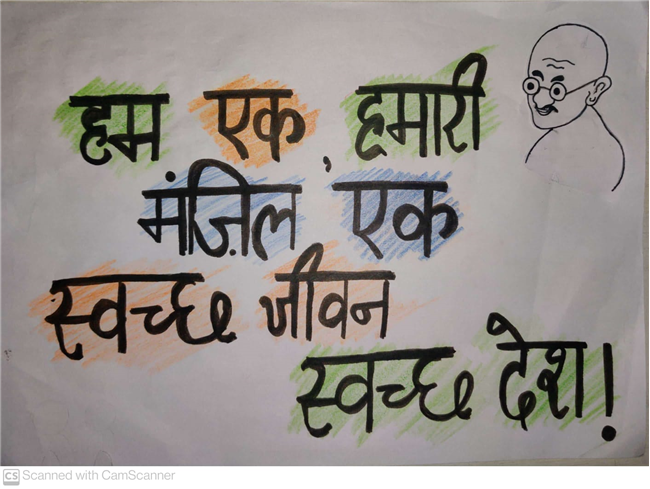 हम एक, हमारी
मंज़िल एक
स्वच्छ जीवन
स्वच्छ देश!
CS Scanned with CamScanner